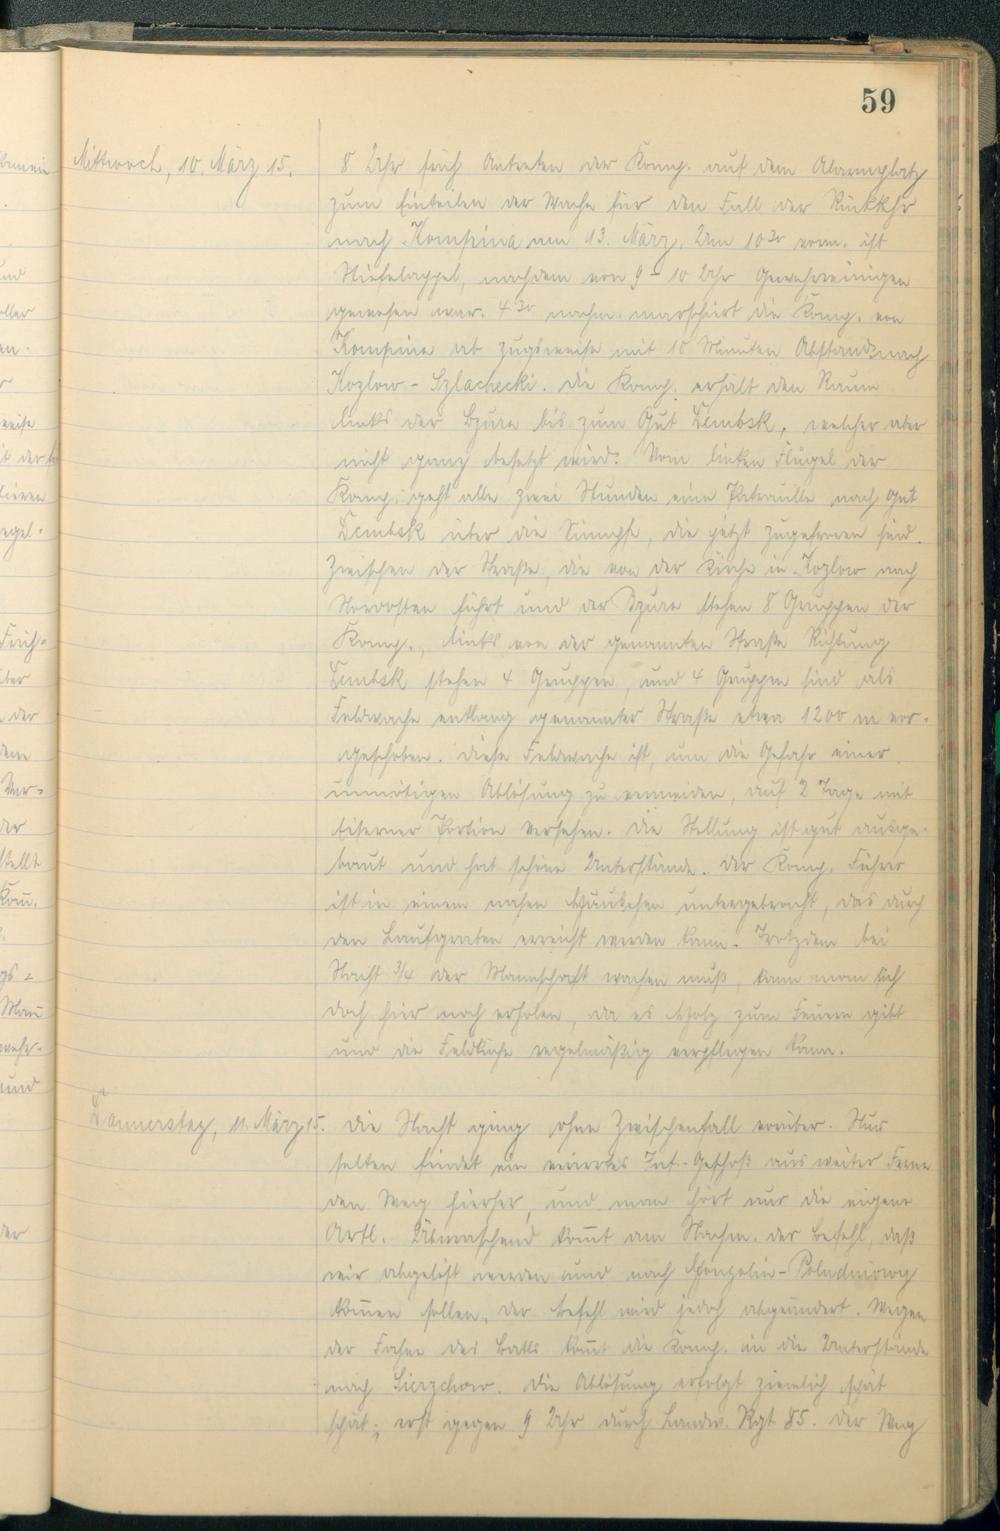 59
Mittwoch, 10. März 15.
8 Uhr früh Antreten der Komp. auf dem Alarmplatz
zum Einteilen der Wache für den Fall der Rückkehr
nach Kompina am 13. März. Um 10 30 vorm. ist
Stiefelappel, nachdem von 9 - 10 Uhr Gewehrreinigen
gewesen war. 4 30 nachm. marschiert die Komp. von
Kompina ab zugsweise mit 10 Minuten Abstand nach
Kozlow - Szlachecki. Die Komp. erhält den Raum
links der Bzura bis zum Gut Dembsk, welcher aber
nicht ganz besetzt wird. Vom linken Flügel der
Komp. geht alle zwei Stunden eine Patrouille nach Gut
Dembsk über die Sümpfe, die jetzt zugefroren sind.
Zwischen der Straße, die von der Kirche in Kozlow nach
Nordosten führt und der Bzura stehen 8 Gruppen der
Komp., links von der genannten Straße Richtung
Dembsk stehen 4 Gruppen, und 4 Gruppen sind als
Feldwache entlang genannter Straße etwa 1200 m vor-
geschoben. Diese Feldwache ist, um die Gefahr einer
unnötigen Ablösung zu vermeiden, auf 2 Tage mit
Eiserner Portion versehen. Die Stellung ist gut ausge-
baut und hat schöne Unterstände. Der Komp. Führer
ist in einem nahen Häuschen untergebracht, das durch
den Laufgraben erreicht werden kann. Trotzdem bei
Nacht 3/4 der Mannschaft wachen muß, kann man sich
doch hier noch erholen, da es Holz zum Feuern gibt
und die Feldküche regelmäßig verpflegen kann.
Donnerstag, 11. März 15.
Die Nacht ging ohne Zwischenfall vorüber. Nur
selten findet ein verirrtes Inf.-Geschoß aus weiter Ferne
den Weg hierher, und man hört nur die eigene
Artl. Überraschend kom̅t am Nachm. der Befehl, daß
wir abgelöst werden und nach Gongolin-Poludniowy
kom̅en sollen, der Befehl wird jedoch abgeändert. Wegen
der des Batls kom̅t die Komp. in die Unterstände
nach Sierzchow. Die Ablösung erfolgt ziemlich spät
spät; erst gegen 9 Uhr durch Landw. Rgt 85. Der Weg